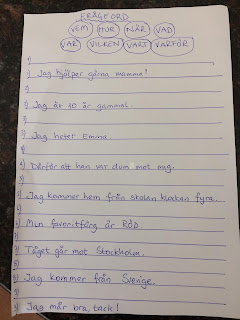 FRÅGEORD
VEM HUR NÄR VAD
VAR VILKEN VART VARFÖR
Jag hjälper gärna mamma!
Jag är 10 år gammal.
Jag heter Emma.
Därför att han var dum mot mig.
Jag kommer hem från skolan klockan fyra.
Min favoritfärg är RÖD
Tåget går mot Stockholm.
Jag kommer från Sverige.
Jag mår bra, tack!